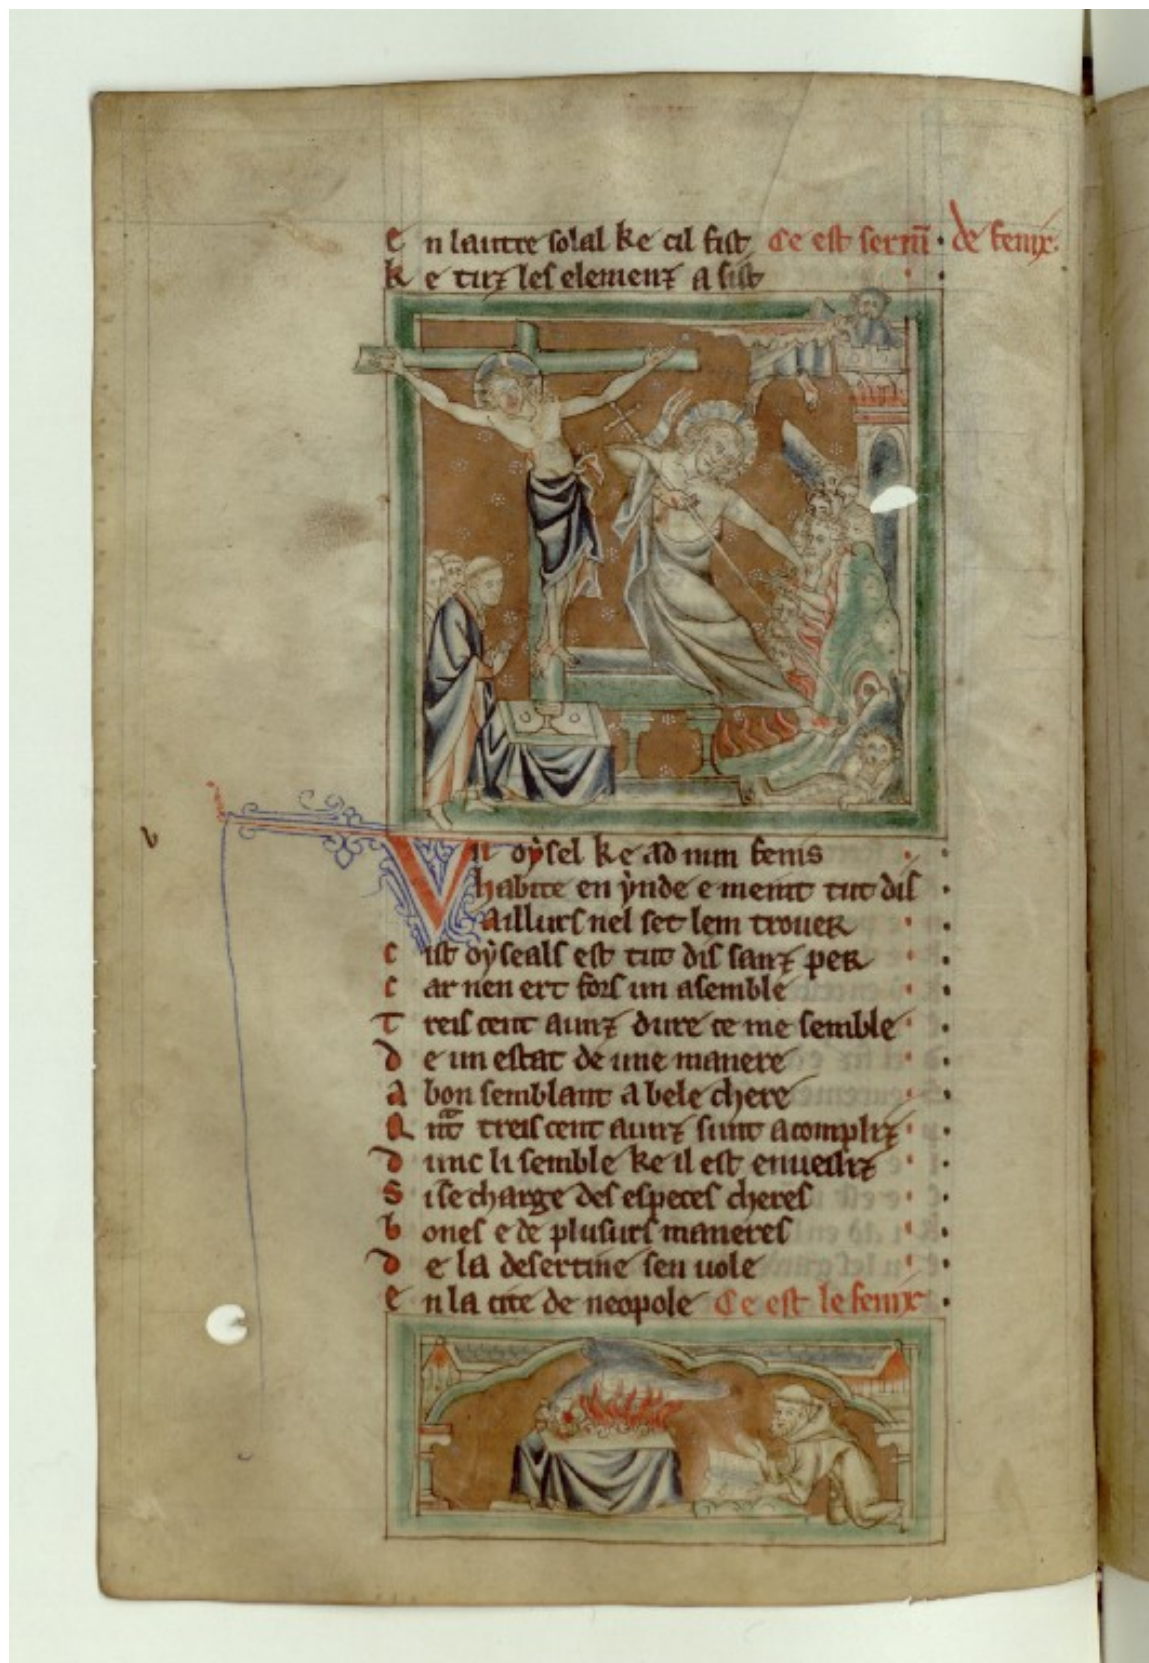 En lautre solal ke cil fist Ce est sermū de fenix.
Ke tuz les elemenz a sist
Un oysel ke ad num fenis
habite en ynde e meint tut dis
Aillurs nel set lem trouer
Cist oyseals est tut dis sanz per
Car nen ert fors un asemble
Treis cent aunz dure ce me semble
de un estat de une manere
A bon semblant a bele chere
Qnt treis cent aunz sunt acompliz
dunc li semble ke il est enueilliz
Si se charge des especes cheres
bones e de plusurs maneres
de la desertine sen uole
En la cite de neopole Ce est le fenix